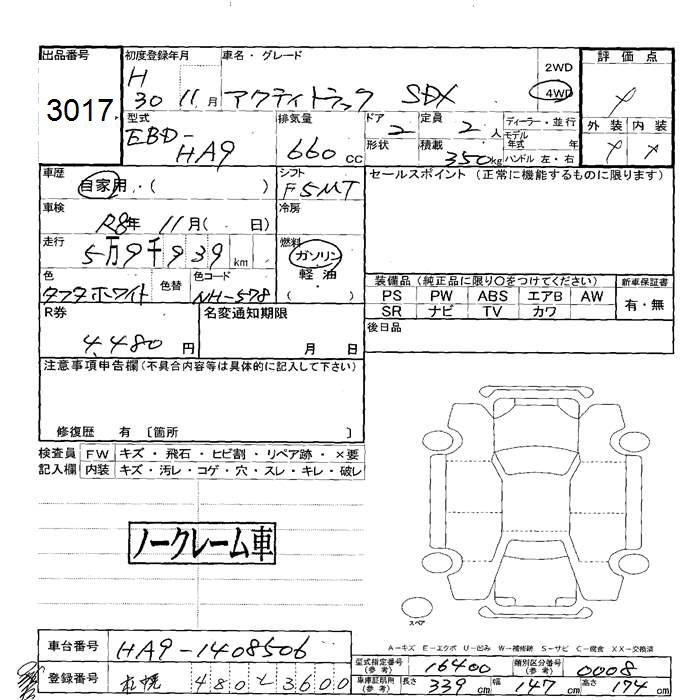 出品番号 初度登録年月 車名・グレード 評価点
3017
H 30 11月 アクティトラック SDX 2WD 4WD
型式 排気量 ドア 定員 ディーラー・並行 外装 内装
EBD-HA9 660cc 2 2人 モデル年式 年
形状 積載 350kg ハンドル 左・右
車歴 シフト セールスポイント(正常に機能するものに限ります)
自家用・( ) F5MT
車検 冷房
R8年 11月( 日)
走行 燃料
5万9千939km ガソリン
軽油
色 色替 色コード ( ) 装備品(純正品に限り○をつけてください) 新車保証書
タフタホワイト NH-578 PS PW ABS エアB AW 有・無
R券 名変通知期限 SR ナビ TV カワ
4,480円 月 日 後日品
注意事項申告欄(不具合内容等は具体的に記入して下さい)
修復歴 有 〔箇所 〕
検査員 FW キズ・飛石・ヒビ割・リペア跡・×要
記入欄 内装 キズ・汚レ・コゲ・穴・スレ・キレ・破レ
ノークレーム車
スペア
A-キズ E-エクボ U-凹み W-補修跡 S-サビ C-腐食 XX-交換済
車台番号 HA9-1408506 型式指定番号(参考) 16400 類別区分番号(参考) 0008
登録番号 札幌 480 と 3600 車庫証明用(参考) 長さ 339cm 幅 147cm 高さ 174cm